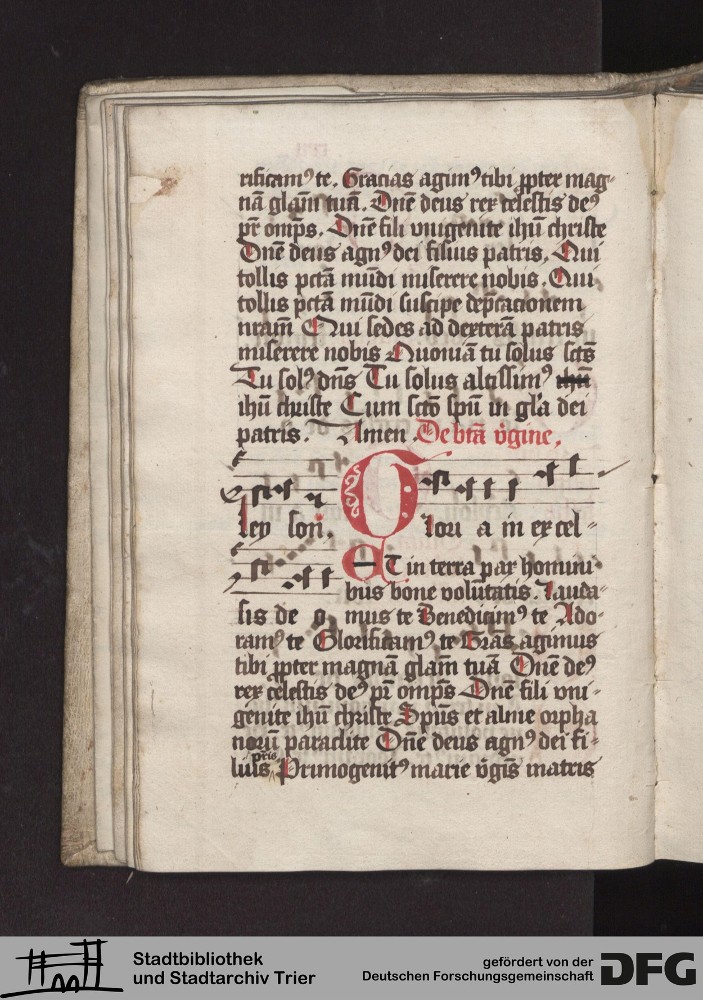 rificam⁹ te. Gracias agim⁹ tibi ꝓpter mag-
nā glam̄ tuā. Dn̄e deus rex celestis de⁹
pr̄ omp̄s. Dn̄e fili vnigenite ihū christe
Dn̄e deus agn⁹ dei filius patris. Qui
tollis pctā mūdi miserere nobis. Qui
tollis pctā mūdi suscipe dep̄cationem
nram̄ Qui sedes ad dexterā patris
miserere nobis Quoniā tu solus sct̄s
Tu sol⁹ dn̄s Tu solus altissim⁹ ihū
ihū christe Cum sctō spū in gl̄a dei
patris. Amen. De btā v̄gine.
ley son. Glori a in excel-
sis de o.
ET in terra pax homini
bus bone volūtatis. lauda-
mus te Benedicim⁹ te Ado-
ram⁹ te Glorificam⁹ te Grās agimus
tibi ꝓpter magnā glam̄ tuā Dn̄e de⁹
rex celestis de⁹ pr̄ omp̄s Dn̄e fili vni-
genite ihū christe Spūs et alme orpha
norū paraclite Dn̄e deus agn⁹ dei fi-
lius pris Primogenit⁹ marie v̄gīs matris
Stadtbibliothek
und Stadtarchiv Trier
gefördert von der
Deutschen Forschungsgemeinschaft
DFG